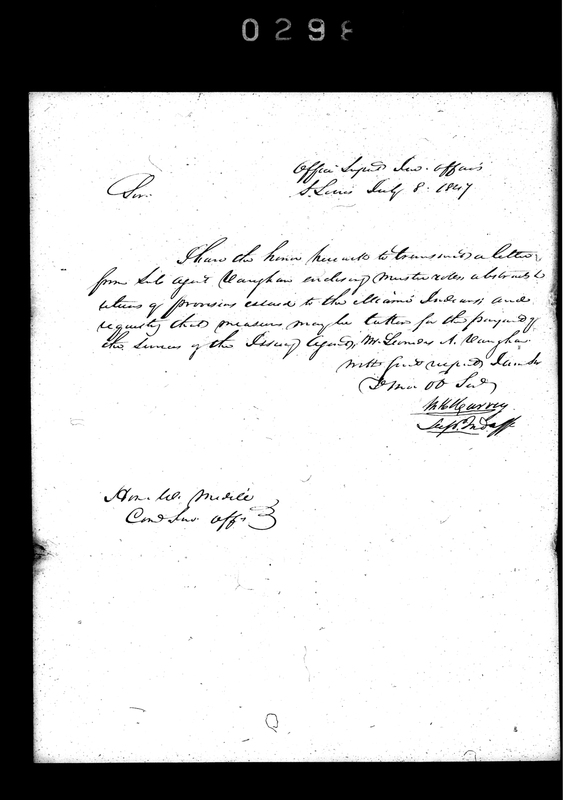 0298
Office Supt Ind. Affairs
St. Louis July 8. 1847
Sir.
I have the honor herewith to transmit a letter
from Sub Agent Vaughan enclosing muster rolls, abstracts &
returns of provisions issued to the Miami Indians; and
requesting that measures may be taken for the payment of
the services of the Issuing Agent, Mr. Leonidas A. Vaughan.
With great respect I am Sir
Your Ob Sert
Harvey
Supt. Ind. Aff
Hon. W. Medill
Com Ind. Aff